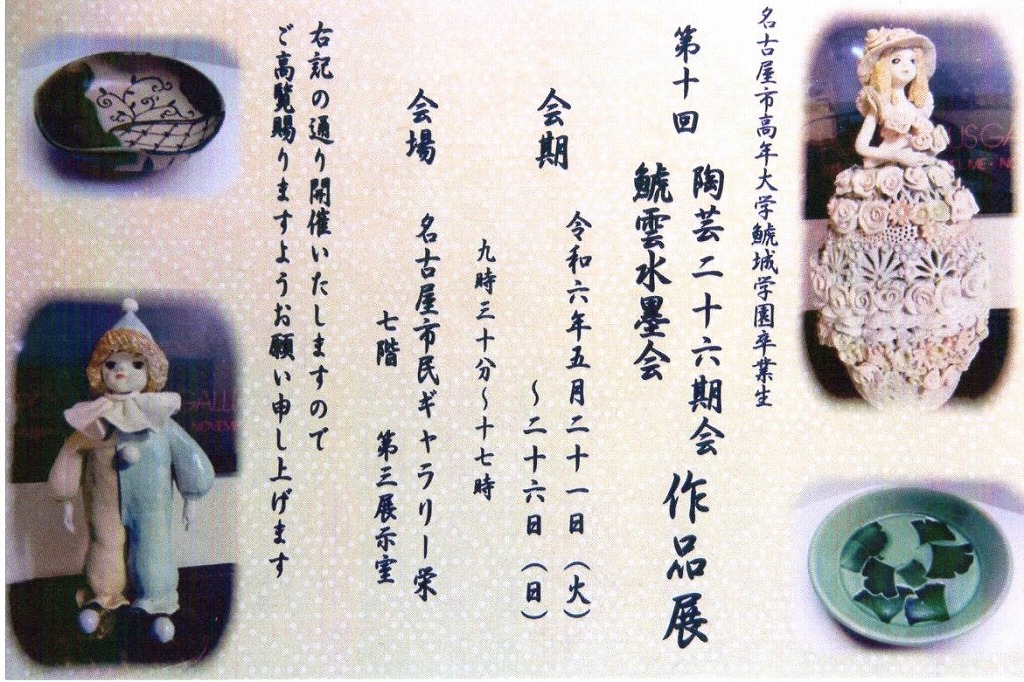 名古屋市高年大学鯱城学園卒業生
第十回
陶芸二十六期会
鯱雲水墨会
作品展
会期
令和六年五月二十一日（火）
～二十六日（日）
九時三十分～十七時
会場
名古屋市民ギャラリー栄
七階 第三展示室
右記の通り開催いたしますので
ご高覧賜りますようお願い申し上げます